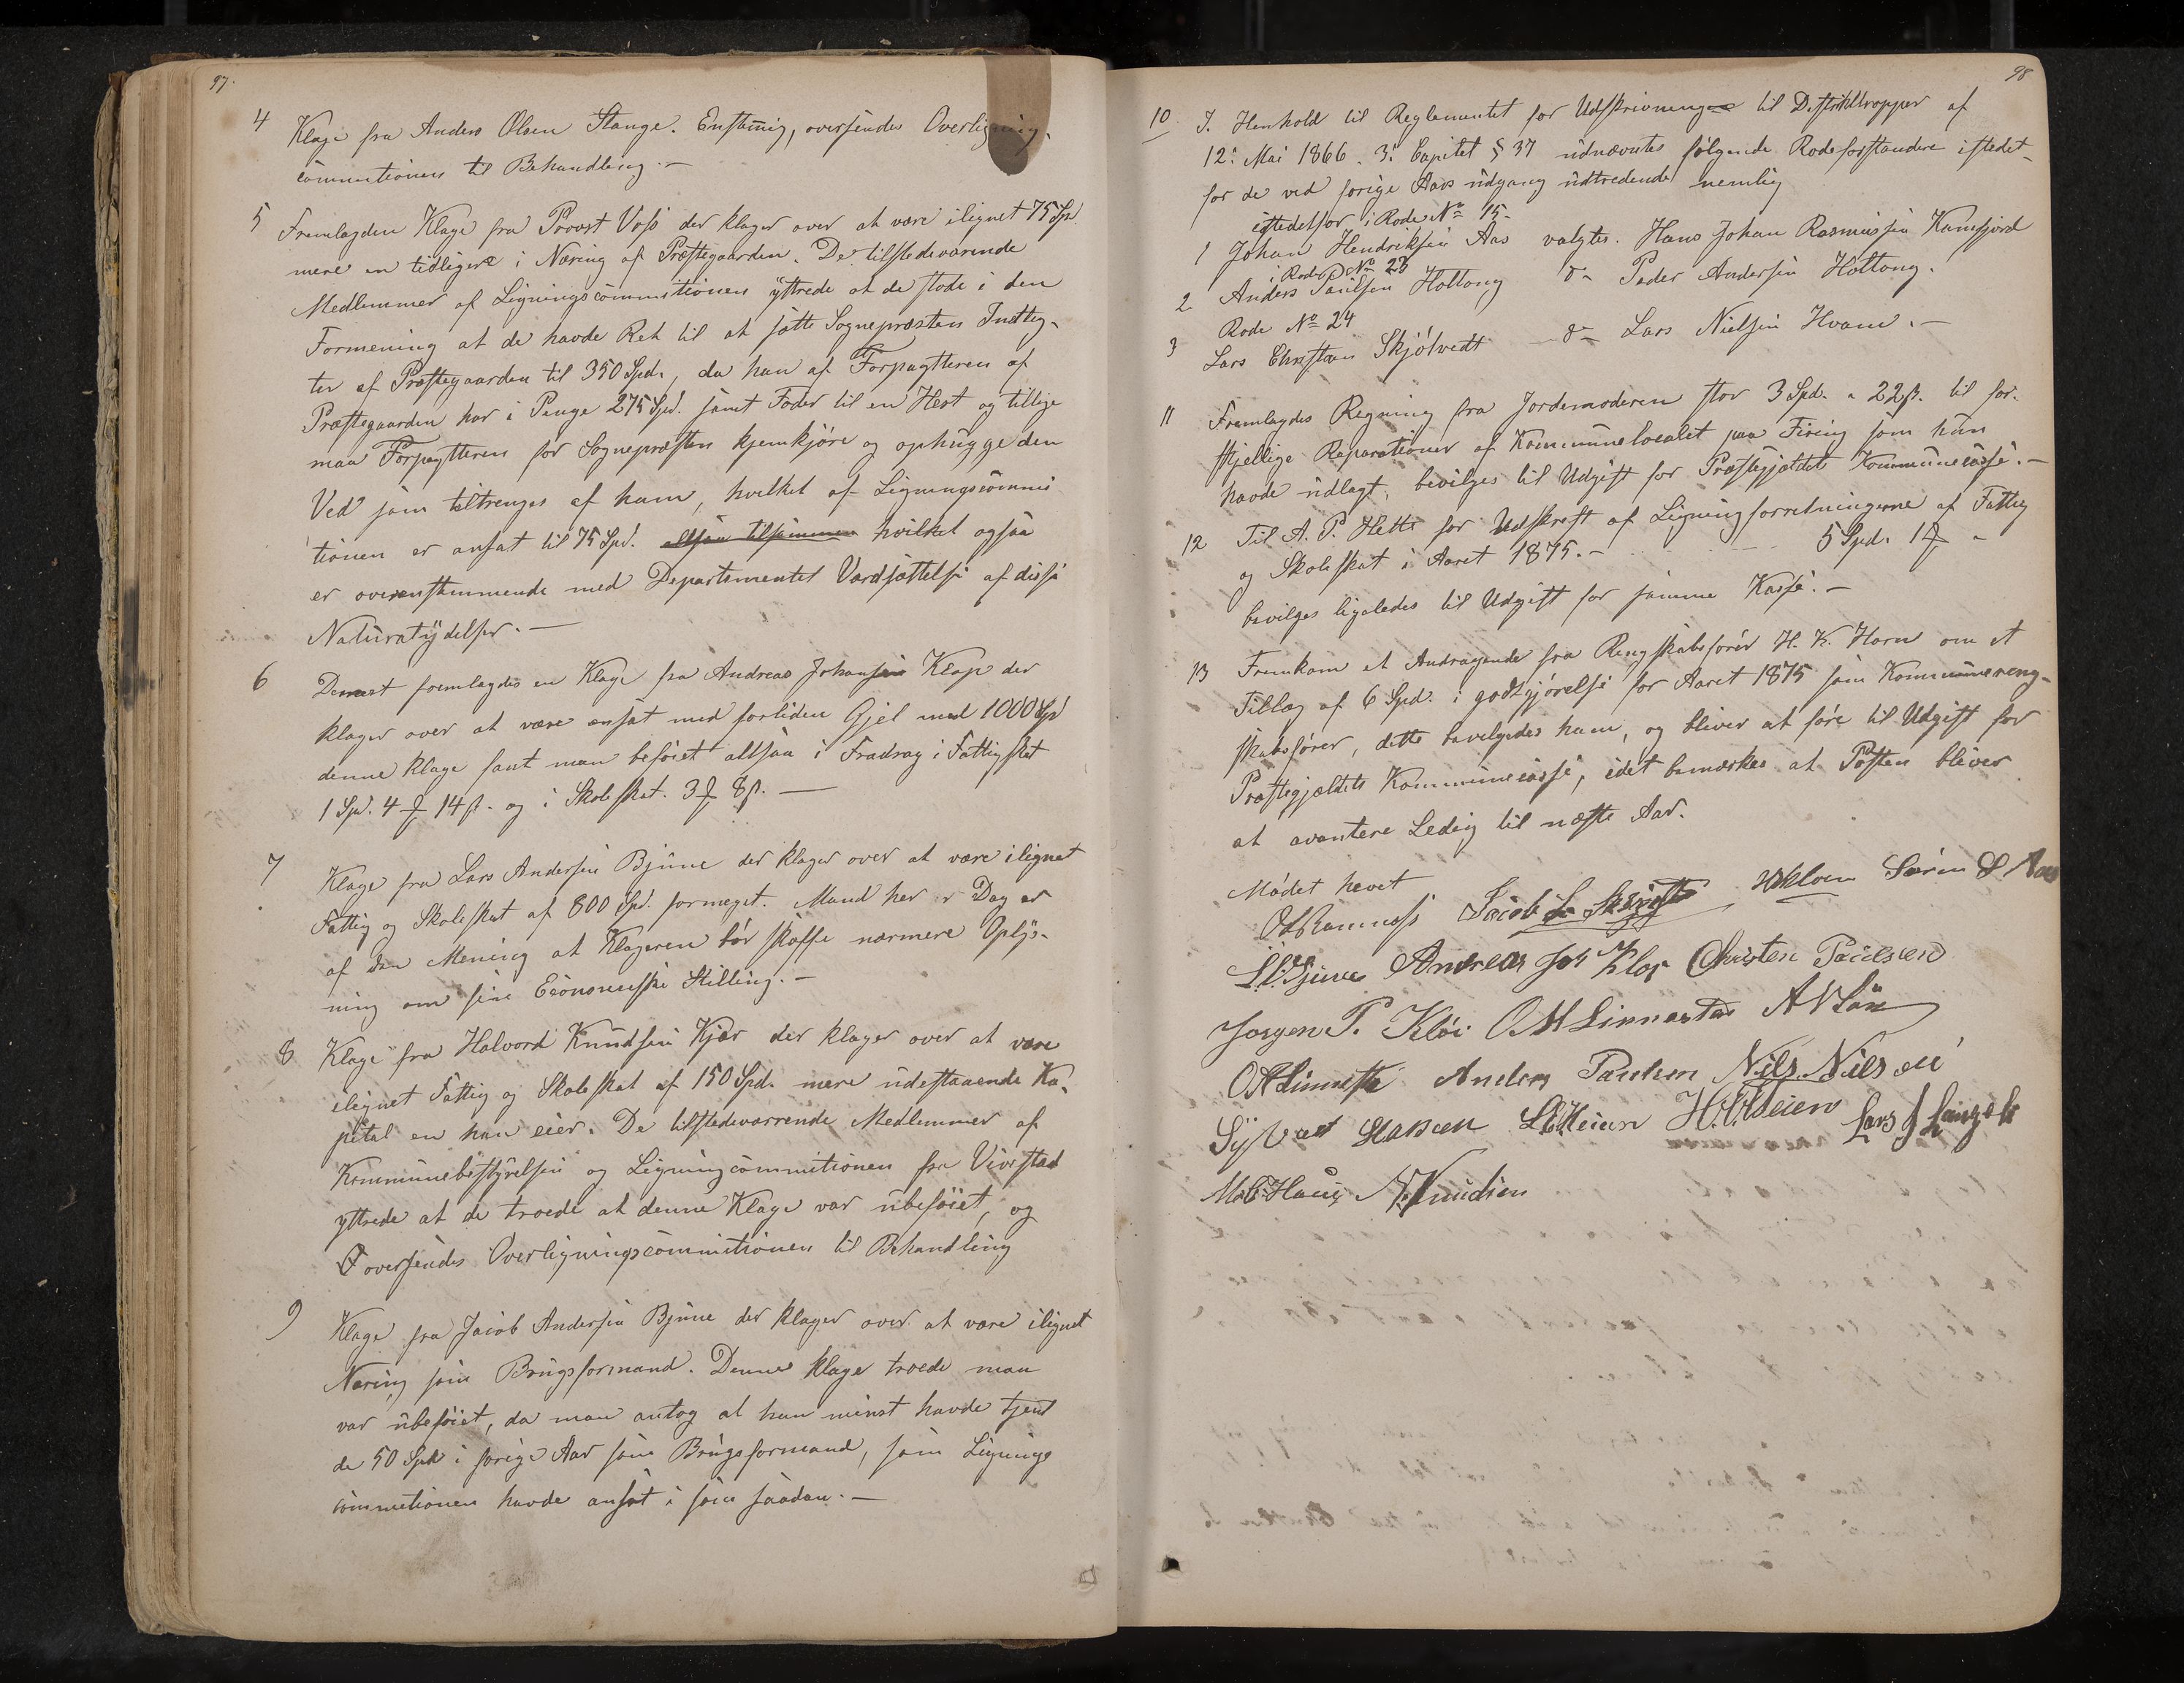 97.
4 Klage fra Anders Olsen Stange. Enstemig, oversendes Overligning-
commitionen til Behandling. —
5 Fremlagdes Klage fra Provst Voss der klager over at være ilignet 75 Spd
mere en tidligere i Næring af Præstegaarden. De tilstedeværende
Medlemmer af Ligningscommitionen yttrede at de stode i den
Formening at de havde Ret til at sætte Sognepræstens Indtæg-
ter af Præstegaarden til 350 Spd., da han af Forpagteren af
Præstegaarden har i Penge 275 Spd. samt Foder til en Hest og tillige
maa Forpagteren for Sognepræsten hjemkjøre og ophugge den
Ved som tiltrenges af ham, hvilket af Ligningscommis
tionen er ansat til 75 Spd. altsaa tilsammen hvilket ogsaa
er overenstemmende med Departementet Værdsættelse af disse
Naturalydelser. —
6 Dernæst fremlagdes en Klage fra Andreas Johansen Klop der
klager over at være ansat med forliden Gjel med 1000 Spd
denne Klage fant man beføiet altsaa i Fradrag i Fattigskat
1 Spd. 4 ℔ 14 ß. og i Skoleskat. 3 ℔ 8 ß. —
7 Klage fra Lars Andersen Bjune der klager over at være ilignet
Fattig og Skoleskat af 800 Spd. formeget. Mand her i Dag er
af den Mening at Klageren bør skaffe nærmere Oplys-
ning om sin Economiske Stilling. —
8 Klage fra Halvord Knudsen Kjær der klager over at være
ilignet Fattig og Skoleskat af 150 Spd. mere udestaaende Ka-
pital en han eier. De tilstedeværrende Medlemmer af
Kommunebestyrelsen og Ligningcommitionen fra Vivestad
yttrede at de troede at denne Klage var ubeføiet, og
oversendes Overligningscommitionen til Behandling
9 Klage fra Jacob Andersen Bjune der klager over at være ilignet
Næring som Brugsformand. Denne klage troede man
var ubeføiet, da man antog at han minst havde tjent
de 50 Spd i forige Aar som Brugsformand, som Lignings
commitionen havde ansat i som saadan. —
98
10 I. Henhold til Reglementet for Udskrivninge til Distriktstropper af
12: Mai 1866. 3: Capitel § 37 udnævntes følgende Rodeforstandere istedet-
for de ved forige Aars udgang udtredende nemlig
istedetfor i Rode No 15.
1 Johan Hendriksen Aas valgtes. Hans Johan Rasmussen Kamfjord
i Rode No 23
2 Anders Paulsen Holtong do Peder Andersen Holtong.
Rode No 24
3 Lars Christian Skjølvedt do Lars Nielsen Hvam. —
11 Fremlagdes Regning fra Jordemoderen stor 3 Spd. " 22 ß. til for-
skjellige Reparationer af Kommunelocalet paa Firing som hun
havde udlagt, bevilges til Udgift for Præstegjeldets Kommunecasse. —
12 Til A. P. Hette for Udskrift af Ligningforretningerne af Fattig
og Skoleskat i Aaret 1875. — 5 Spd. 1 ℔ "
bevilges ligeledes til Udgift for samme Kasse. —
13 Fremkom et Andragende fra Rengskabsfører H. K. Horn om et
Tillæg af 6 Spd. i godtgjørelse for Aaret 1875 som Kommunereng-
skabsfører, dette bevilgedes ham, og bliver at føre til Udgift for
Præstegjeldets Kommunecasse, idet bemærkes at Posten bliver
at avantere Ledig til næste Aar.
Mødet hævet
Jacob L. Søren S Aas
Andreas Joh Klop Christen Paulsen
Jørgen P. Kløi O M Linnestad
Anders Paulsen Nils Nilsen
Hansen L E Meien
N. Knudsen